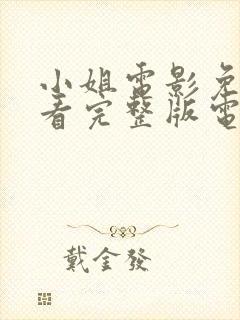 小姐電影免
看完整版電
戴金發